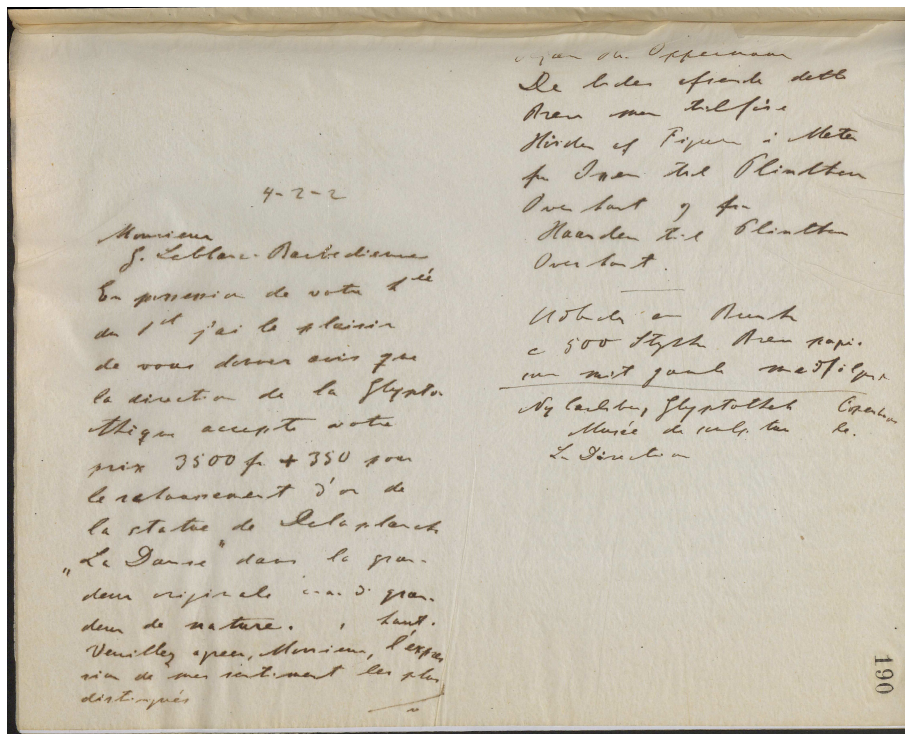 4-2-2
Monsieur
G. Leblanc-Barbedienne
En possession de votre
du 1er j'ai le plaisir
de vous donner avis que
la direction de la Glypto-
thèque accepte votre
prix 3500 fr + 350 pour
le rehaussement d'or de
la statue de Delaplanche
„La Danse" dans la gran-
deur originale gran-
deur de nature. haut.
Veuillez agréer, Monsieur, l'expres
sion de mes sentiment les plus
distingués
Oppermann
De bedes efter dette
Brev
Høiden af Figuren i Meter
fra Issen til Plinthen
Overkant og fra
Haanden til Plinthen
Overkant.
c 500 Stykk Brev papir
mit gamle
Ny Carlsberg Glyptothek
Musée de sculpture
La Direction
190